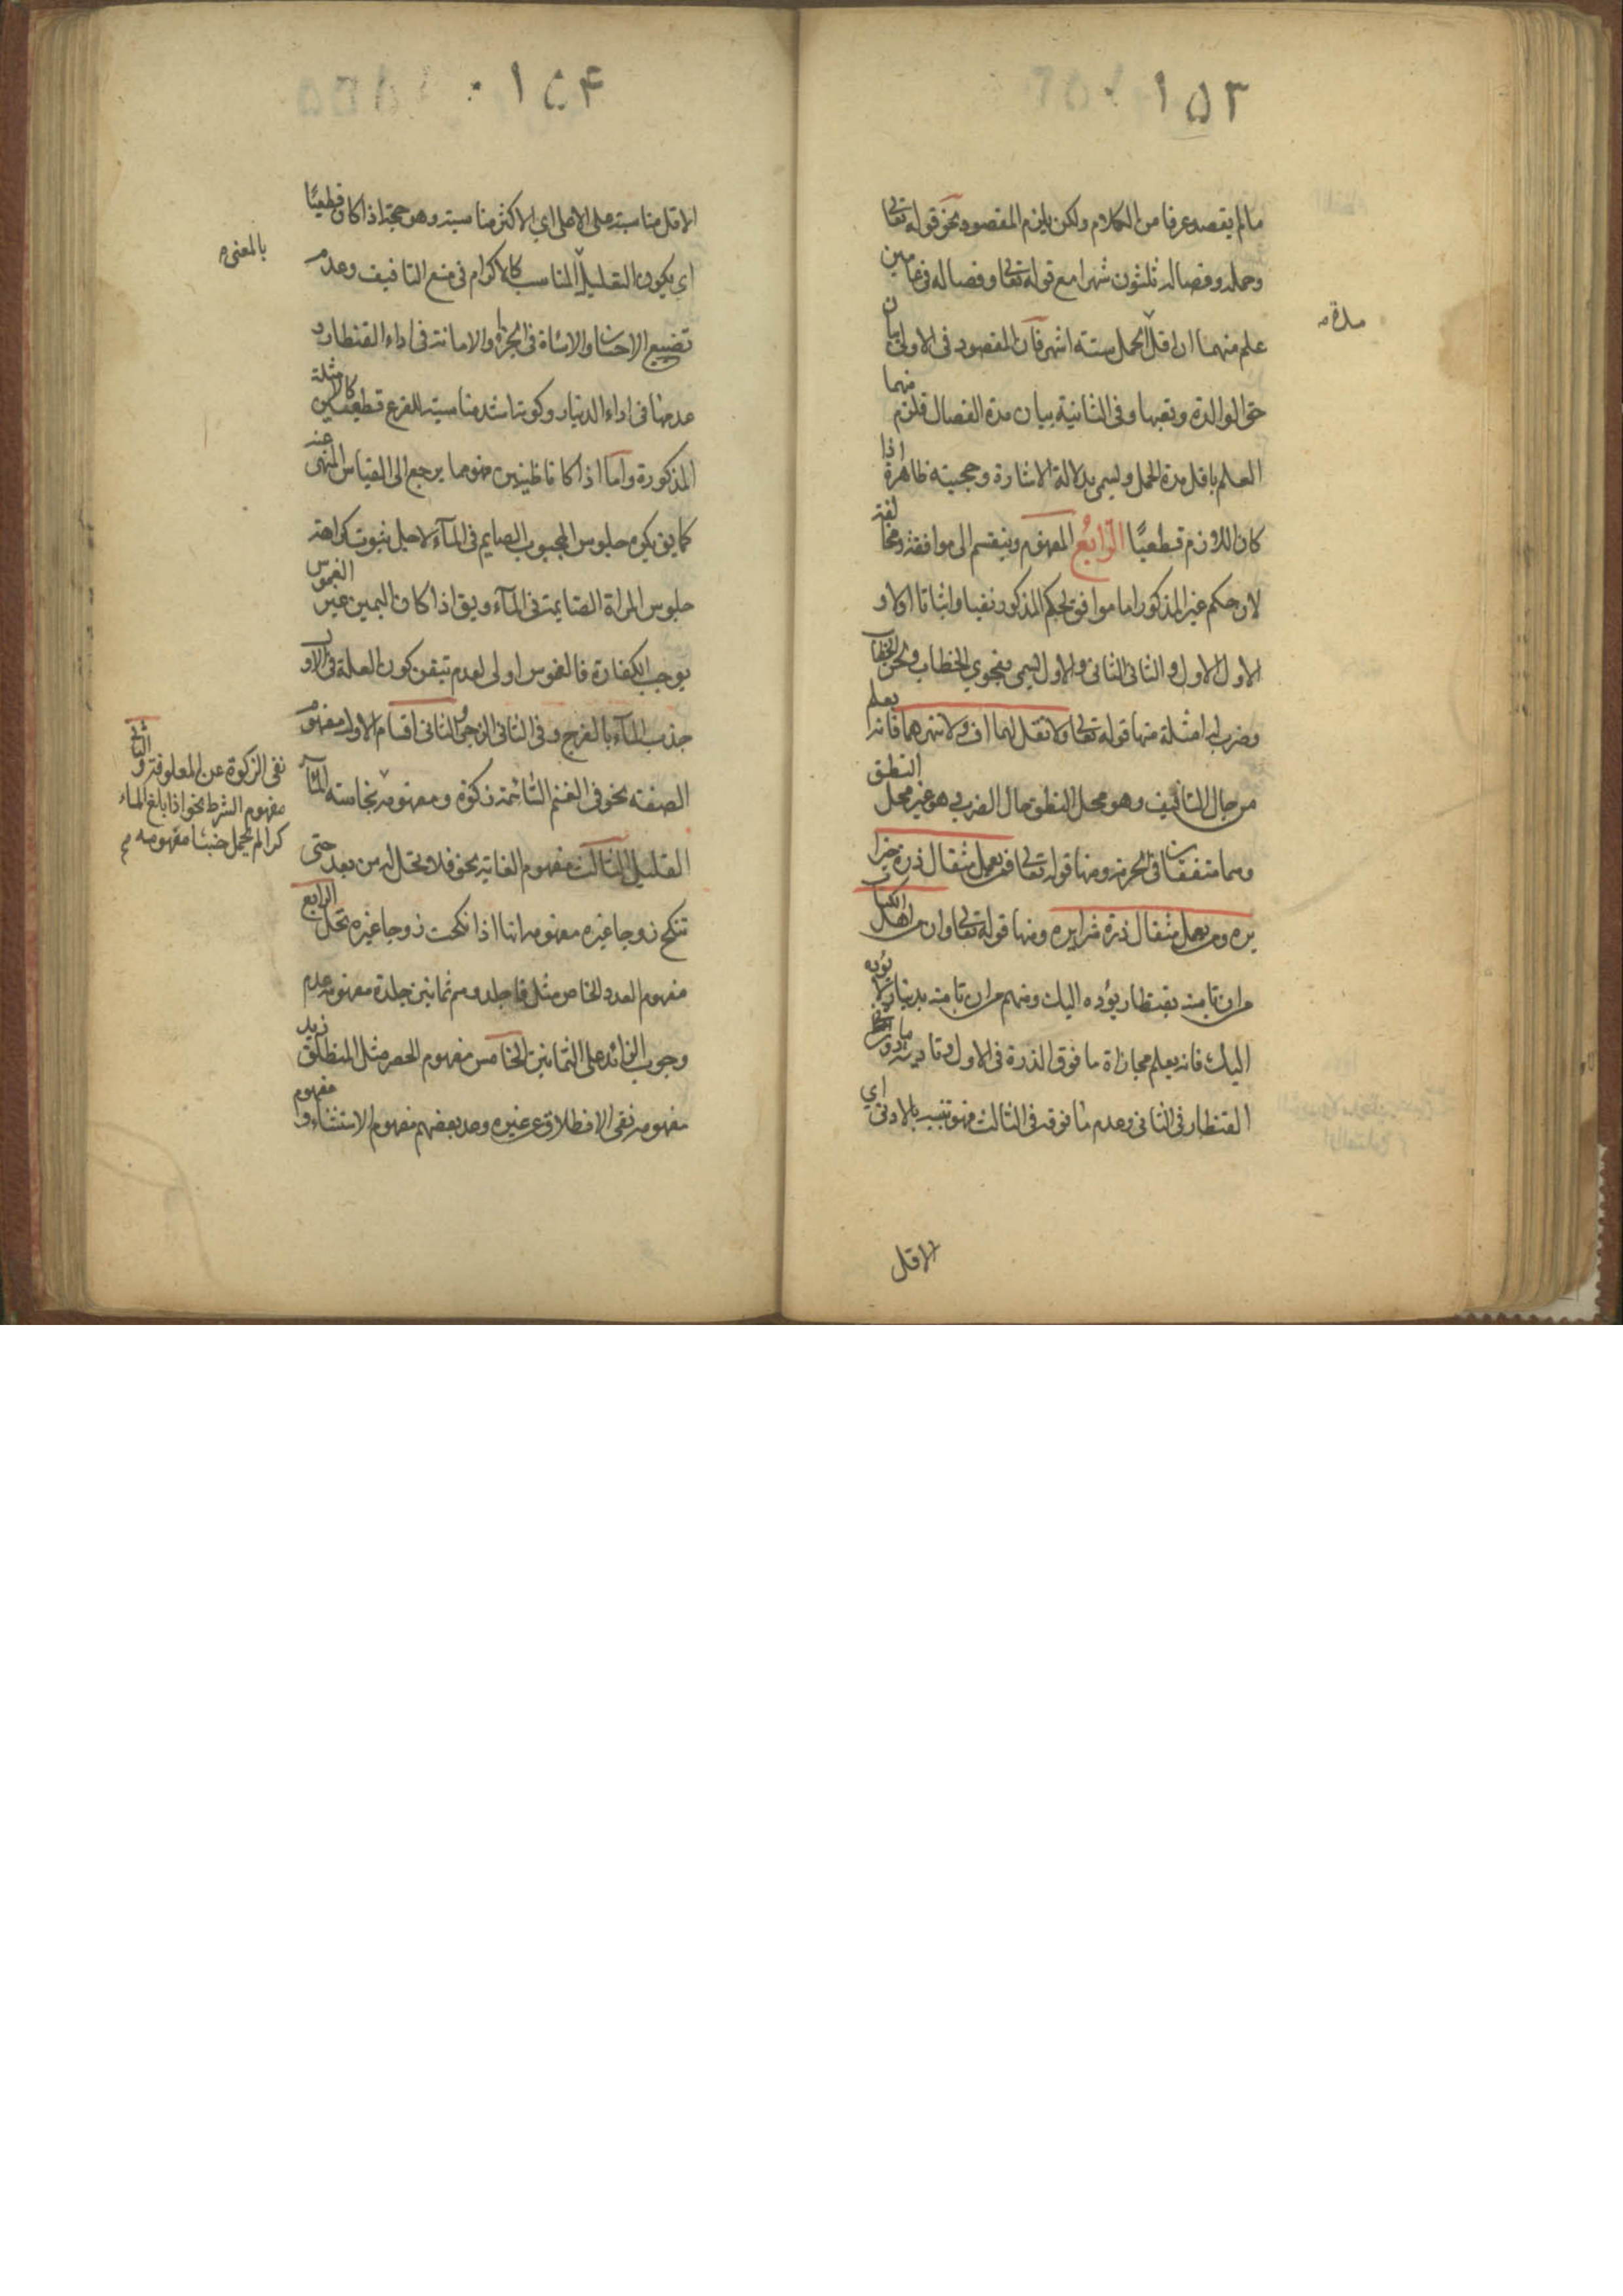 ١٥٣
ما لم يقصد عرفا من الكلام ولكن يلزم المقصود نحو قوله تعالى
وحمله وفصاله ثلثون شهرا مع قوله تعالى وفصاله في عامين
علم منهما ان اقل الحمل ستة اشهر فان المقصود في الاولى بيان
مدة
حق الوالدة وتعبها وفي الثانية بيان مدة الفصال فلزم منهما
العلم باقل مدة الحمل ويسمى بدلالة الاشارة وحجيته ظاهرة اذا
كان اللازم قطعيا الرابع المفهوم وينقسم الى موافقة ومخالفة
لان حكم غير المذكور اما موافق لحكم المذكور نفيا واثباتا اولا و
الاول الاول والثاني الثاني والاول يسمى بفحوي الخطاب ولحن الخطاب
وضرب له امثلة منها قوله تعالى ولا تقل لهما اف ولا تنهرهما فانه يعلم
من حال التأفيف وهو محل النطق حال الضرب وهو غير محل النطق
وهما متفقان في الحرمة ومنها قوله تعالى فمن يعمل مثقال ذرة خيرا
يره ومن يعمل مثقال ذرة شرا يره ومنها قوله تعالى وان من اهل الكتاب
من ان تامنه بقنطار يؤده اليك ومنهم من ان تامنه بدينار لا يؤده
اليك فانه يعلم مجازاة ما فوق الذرة في الاول وتادية ما دون
القنطار في الثاني وعدم ما فوقه في الثالث فهو تنبيه بالادنى اي
الاقل
١٥٤
الاقل مناسبة على الاعلى اي الاكثر مناسبة وهو حجة اذا كان قطعيا
اي يكون التعليل المناسب كالاكرام في منع التافيف وعدم
بالمعنى
تضييع الاحسان والاساءة في الجزاء والامانة في اداء القنطار و
عدمها في اداء الدينار وكونه اشد مناسبة للفرع قطعيين كالامثلة
المذكورة واما اذا كانا ظنيين فهو مما يرجع الى القياس المنهى عنه
كما يق يكره جلوس المجبوب الصايم في الماء لاجل ثبوت كراهة
جلوس المراة الصايمة في الماء ويق اذا كان اليمين غير الغموس
يوجب الكفارة فالغموس اولى لعدم تيقن كون العلة في الاول
جذب الماء بالفرج وفي الثاني الزجر والثاني اقسام الاول مفهوم
الصفة نحو في الغنم السائمة زكوة ومفهومه نجاسته الماء
نفى الزكوة عن المعلوفة والثاني
مفهوم الشرط نحو اذا بلغ الماء
كرا لم يحمل خبثا مفهومه
القليل الثالث مفهوم الغاية نحو فلا تحل له من بعد حتى
تنكح زوجا غيره مفهومه انها اذا نكحت زوجا غيره تحل الرابع
مفهوم العدد الخاص مثل فاجلدوهم ثمانين جلدة مفهومه عدم
وجوب الزائد على الثمانين الخامس مفهوم الحصر مثل المنطلق زيد
مفهومه نفى الانطلاق عن غيره وعد بعضهم مفهوم الاستثناء و مفهوم